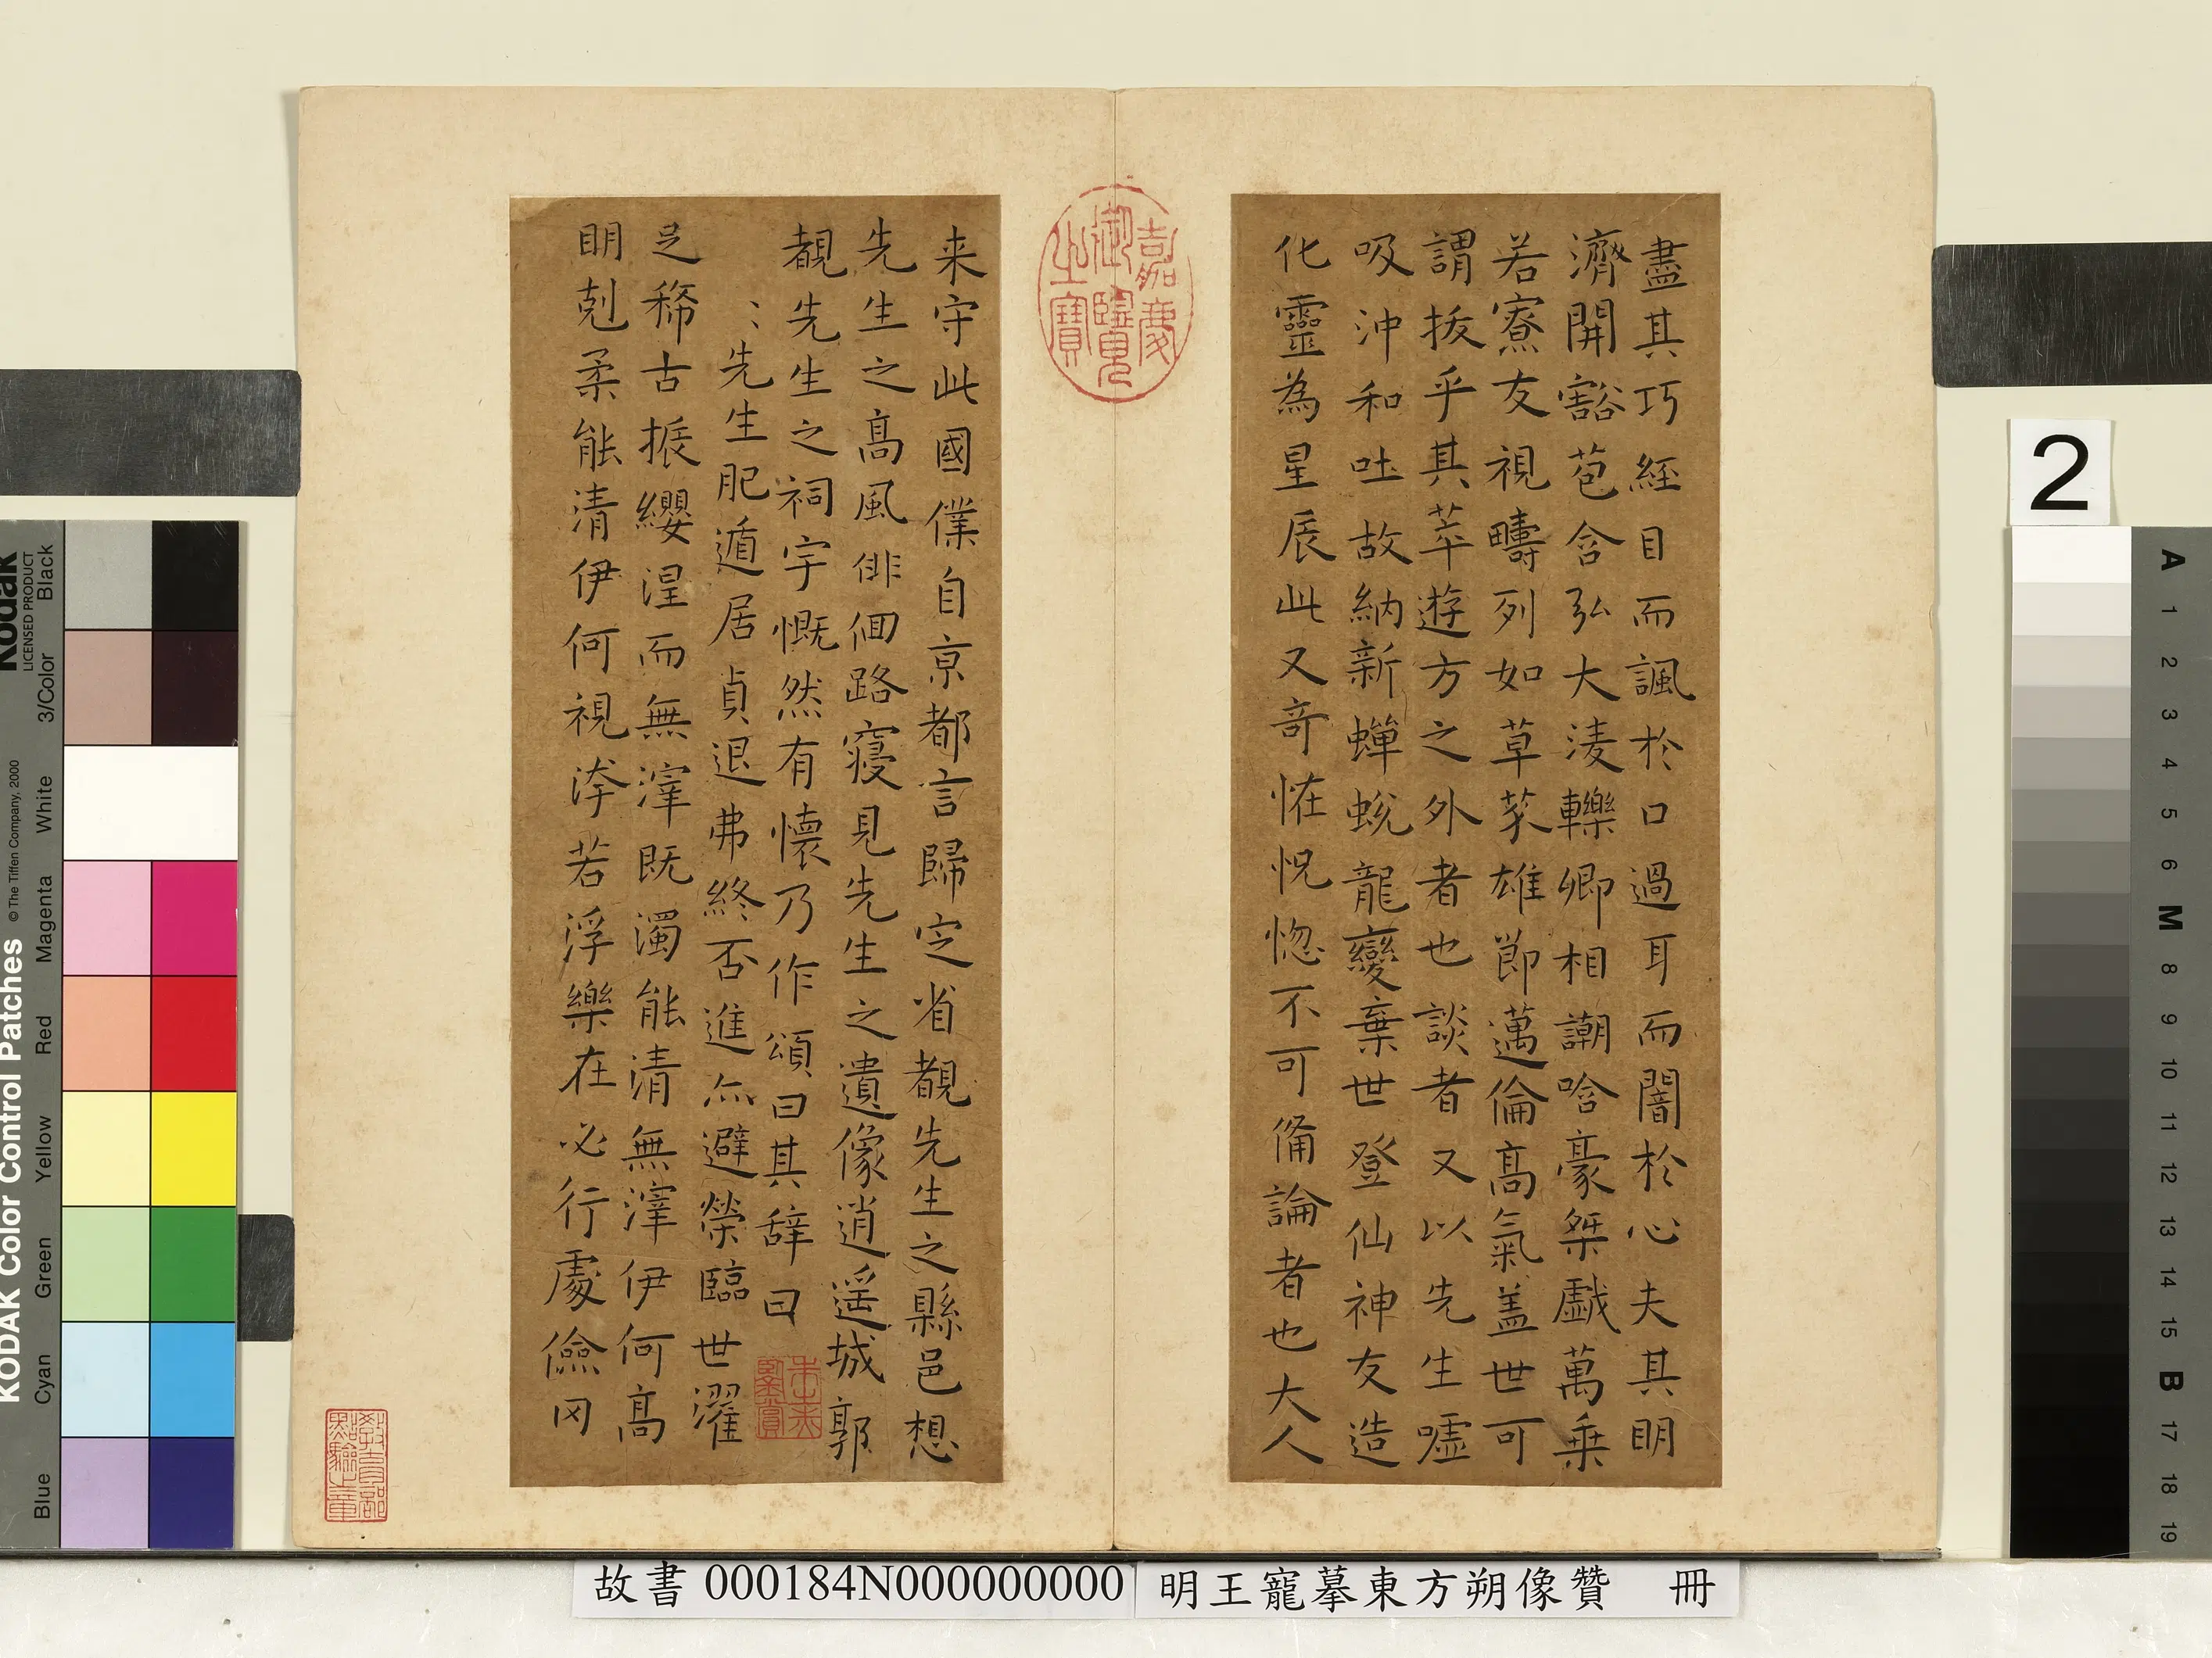 盡其巧經目而諷於口過耳而闇於心夫其明
濟開豁苞含弘大淩轢卿相謿哈豪桀戲萬乗
若寮友視疇列如草芥雄節邁倫髙氣盖世可
謂拔乎其萃遊方之外者也談者又以先生噓
吸沖和吐故納新蟬蛻龍變棄世登仙神友造
化靈為星辰此又奇恠怳惚不可俻論者也大人
来守此國僕自京都言歸定省覩先生之縣邑想
先生之髙風俳佪路寢見先生之遺像逍遥城郭
覩先生之祠宇慨然有懷乃作頌曰其辞曰
: 先生肥遁居貞退弗終否進亦避榮臨世濯
足稀古振纓涅而無滓既濁能清無滓伊何髙
明剋柔能清伊何視洿若浮樂在必行處儉罔
嘉慶御覽之寶
教育部點驗之章
故書 000184N000000000
明王寵摹東方朔像贊 冊
2
KODAK Color Control Patches
© The Tiffen Company, 2000
Kodak
LICENSED PRODUCT
Blue
Cyan
Green
Yellow
Red
Magenta
White
3/Color
Black
A
1
2
3
4
5
6
M
8
9
10
11
12
13
14
15
B
17
18
19